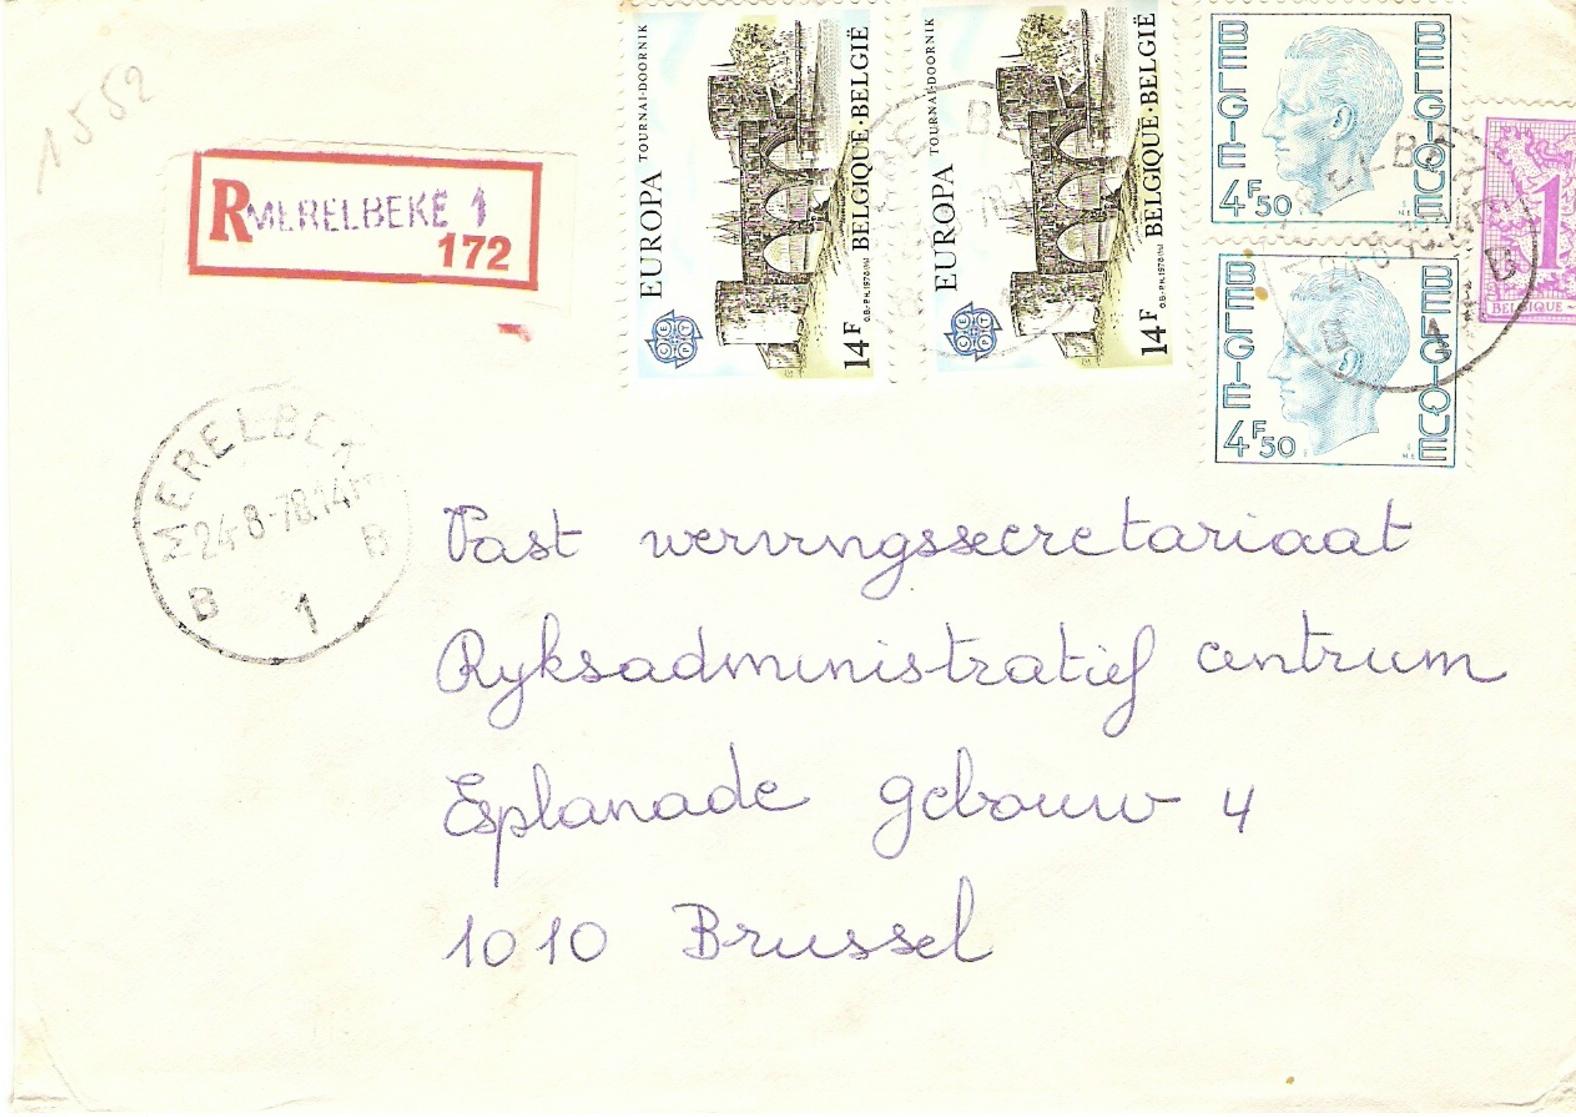 1552
R MERELBEKE 1
172
EUROPA TOURNAI-DOORNIK
14F BELGIQUE·BELGIË
CEPT
EUROPA TOURNAI-DOORNIK
14F BELGIQUE·BELGIË
CEPT
BELGIE
BELGIQUE
4F50
BELGIE
BELGIQUE
4F50
1
BELGIQUE -
MERELBEKE
24-8-78.14
B 1 B
Vast wervingssecretariaat
Ryksadministratief centrum
Esplanade gebouw 4
1010 Brussel